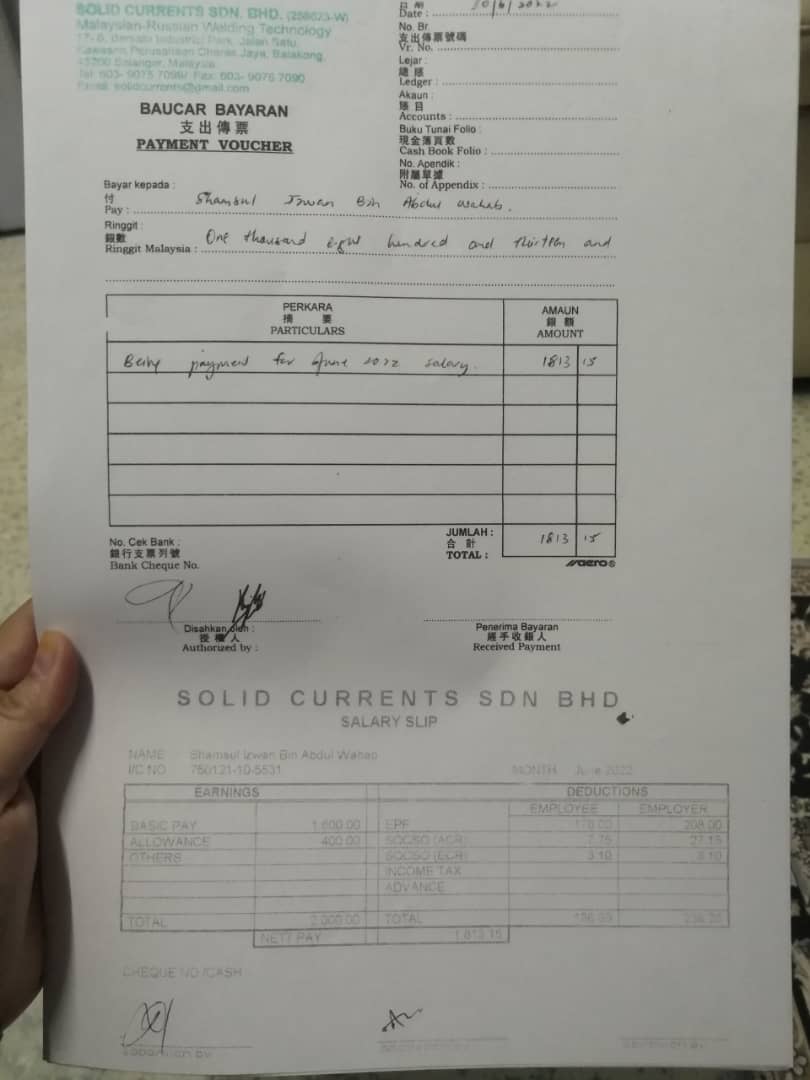 SOLID CURRENTS SDN. BHD. (258623-W)
Malaysian-Russian Welding Technology
Industrial Park, Jalan Satu,
Kawasan Perusahaan Cheras Jaya, Balakong,
43200 Selangor, Malaysia.
Tel: 603- 9075 7099/ Fax: 603- 9076 7090
Email: solidcurrents@gmail.com
日期
Date : 10/6/2022
No. Br.
支出傳票號碼
Vr. No.
Lejar :
總賬
Ledger :
Akaun :
賬目
Accounts :
Buku Tunai Folio :
現金簿頁數
Cash Book Folio :
No. Apendik :
附屬單據
No. of Appendix :
BAUCAR BAYARAN
支出傳票
PAYMENT VOUCHER
Bayar kepada :
付
Pay : Shamsul Izwan Bin Abdul Wahab.
Ringgit :
銀數
Ringgit Malaysia : One thousand eight hundred and thirteen and
PERKARA
摘 要
PARTICULARS
AMAUN
銀 額
AMOUNT
Being payment for June 2022 salary. 1813 15
No. Cek Bank :
銀行支票列號
Bank Cheque No.
JUMLAH :
合 計
TOTAL : 1813 15
aero®
Disahkan oleh :
授權人
Authorized by :
Penerima Bayaran
經手收銀人
Received Payment
SOLID CURRENTS SDN BHD
SALARY SLIP
NAME Shamsul Izwan Bin Abdul Wahab
I/C NO 750121-10-5531 MONTH June 2022
EARNINGS DEDUCTIONS
EMPLOYEE EMPLOYER
BASIC PAY 1,600.00 EPF 176.00 208.00
ALLOWANCE 400.00 SOCSO (ACR) 7.75 27.15
OTHERS SOCSO (ECR) 3.10 3.10
INCOME TAX
ADVANCE
TOTAL 2,000.00 TOTAL 186.85 238.25
NETT PAY 1,813.15
CHEQUE NO /CASH